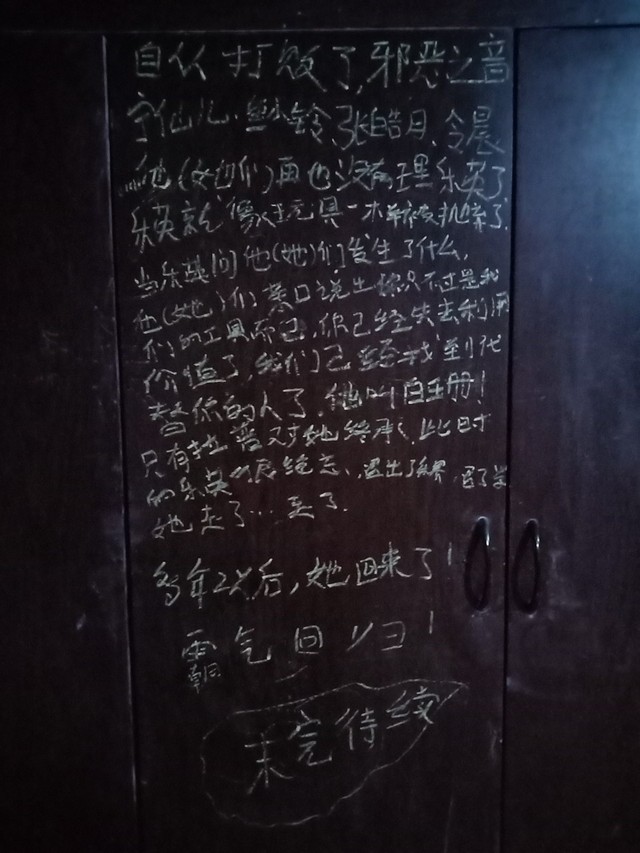 自从打败了,邪恶之音
仙儿.小铃,张皓月、令晨
他(她们)再也没有理乐英了
乐英就像玩具一样被扒落了.
当乐英问他(她)们发生了什么,
他(她)们菜口说出你只不过是我
们的工具而已,你已经失去利用
价值了,我们已经找到代
替你的人了,他叫白玉册!
只有拉普对她,此时
的乐英很绝望、退出了界,
她走了…走了.
多年2×后,她回来了!
霸气回归!
未完待续